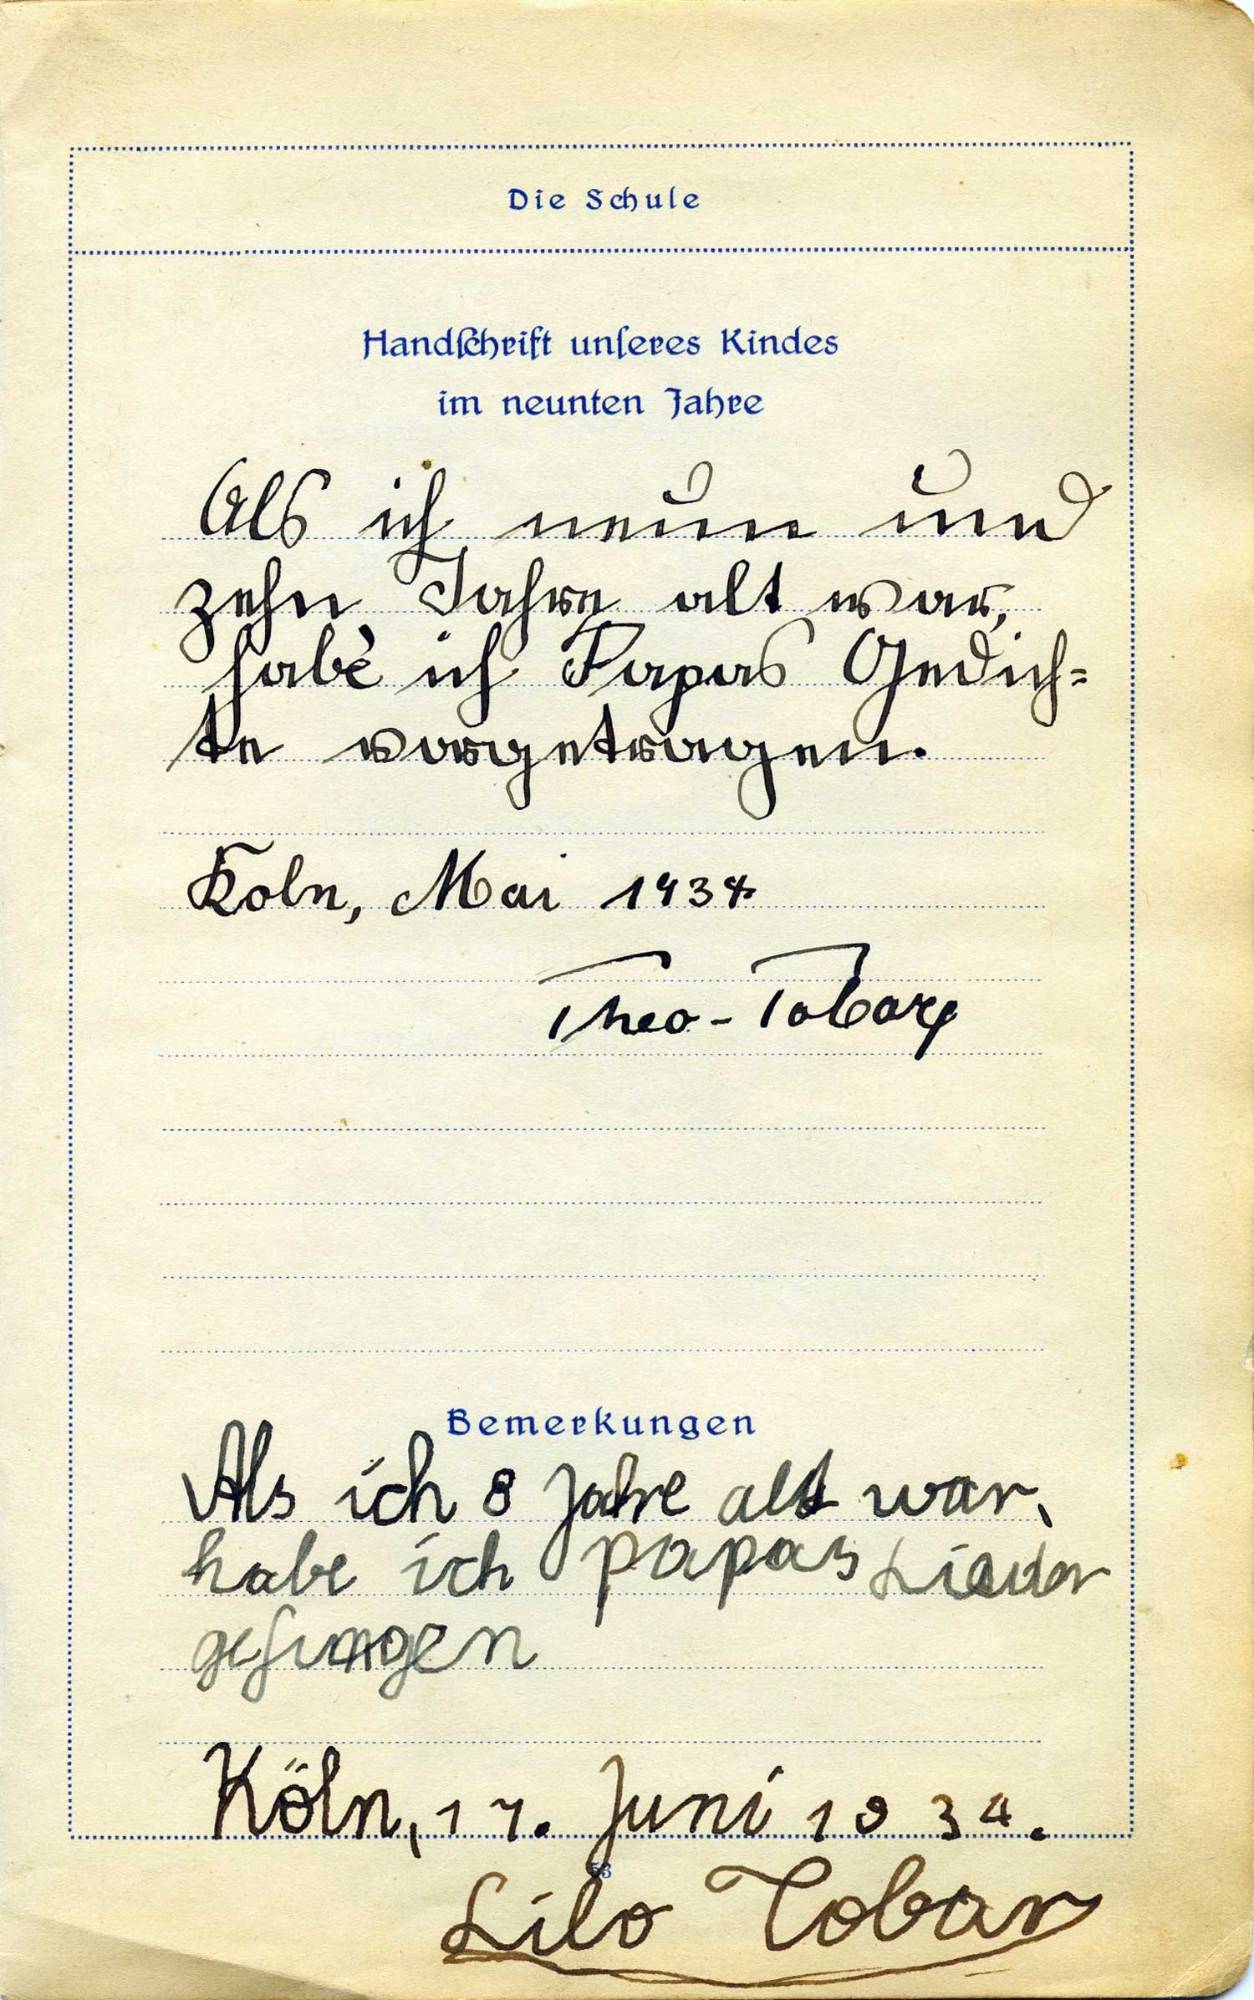 Die Schule
Handschrift unseres Kindes
im neunten Jahre
Als ich neun und
zehn Jahre alt war,
habe ich Papas Gedich=
te vorgetragen.
Köln, Mai 1934
Theo-Tobar
Bemerkungen
Als ich 8 Jahre alt war,
habe ich papas Lieder
gesungen
Köln, 17. Juni 1934.
53
Lilo Tobar